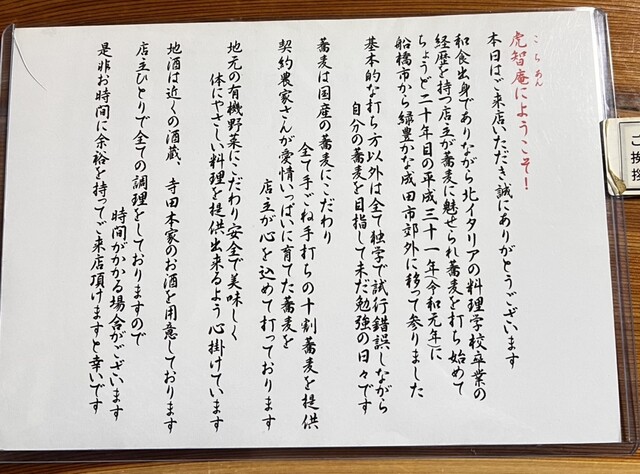 こちあん
虎智庵にようこそ！
本日はご来店いただき誠にありがとうございます
和食出身でありながら北イタリアの料理学校卒業の
経歴を持つ店主が蕎麦に魅せられ蕎麦を打ち始めて
ちょうど二十年目の平成三十一年令和元年に
船橋市から緑豊かな成田市郊外に移って参りました
基本的な打ち方以外は全て独学で試行錯誤しながら
自分の蕎麦を目指して未だ勉強の日々です
蕎麦は国産の蕎麦にこだわり
全て手ごね手打ちの十割蕎麦を提供
契約農家さんが愛情いっぱいに育てた蕎麦を
店主が心を込めて打っております
地元の有機野菜にこだわり安全で美味しく
体にやさしい料理を提供出来るよう心掛けています
地酒は近くの酒蔵、寺田本家のお酒を用意しております
店主ひとりで全ての調理をしておりますので
時間がかかる場合がございます
是非お時間に余裕を持ってご来店頂けますと幸いです
ご挨拶